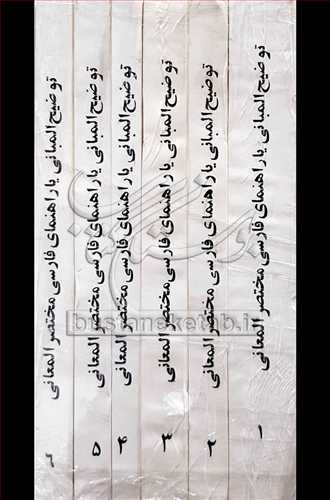 توضیح المبانی یا راهنمای فارسی مختصر المعانی ۱
توضیح المبانی یا راهنمای فارسی مختصر المعانی ۲
توضیح المبانی یا راهنمای فارسی مختصر المعانی ۳
توضیح المبانی یا راهنمای فارسی مختصر المعانی ۴
توضیح المبانی یا راهنمای فارسی مختصر المعانی ۵
توضیح المبانی یا راهنمای فارسی مختصر المعانی
bustaneketab.ir